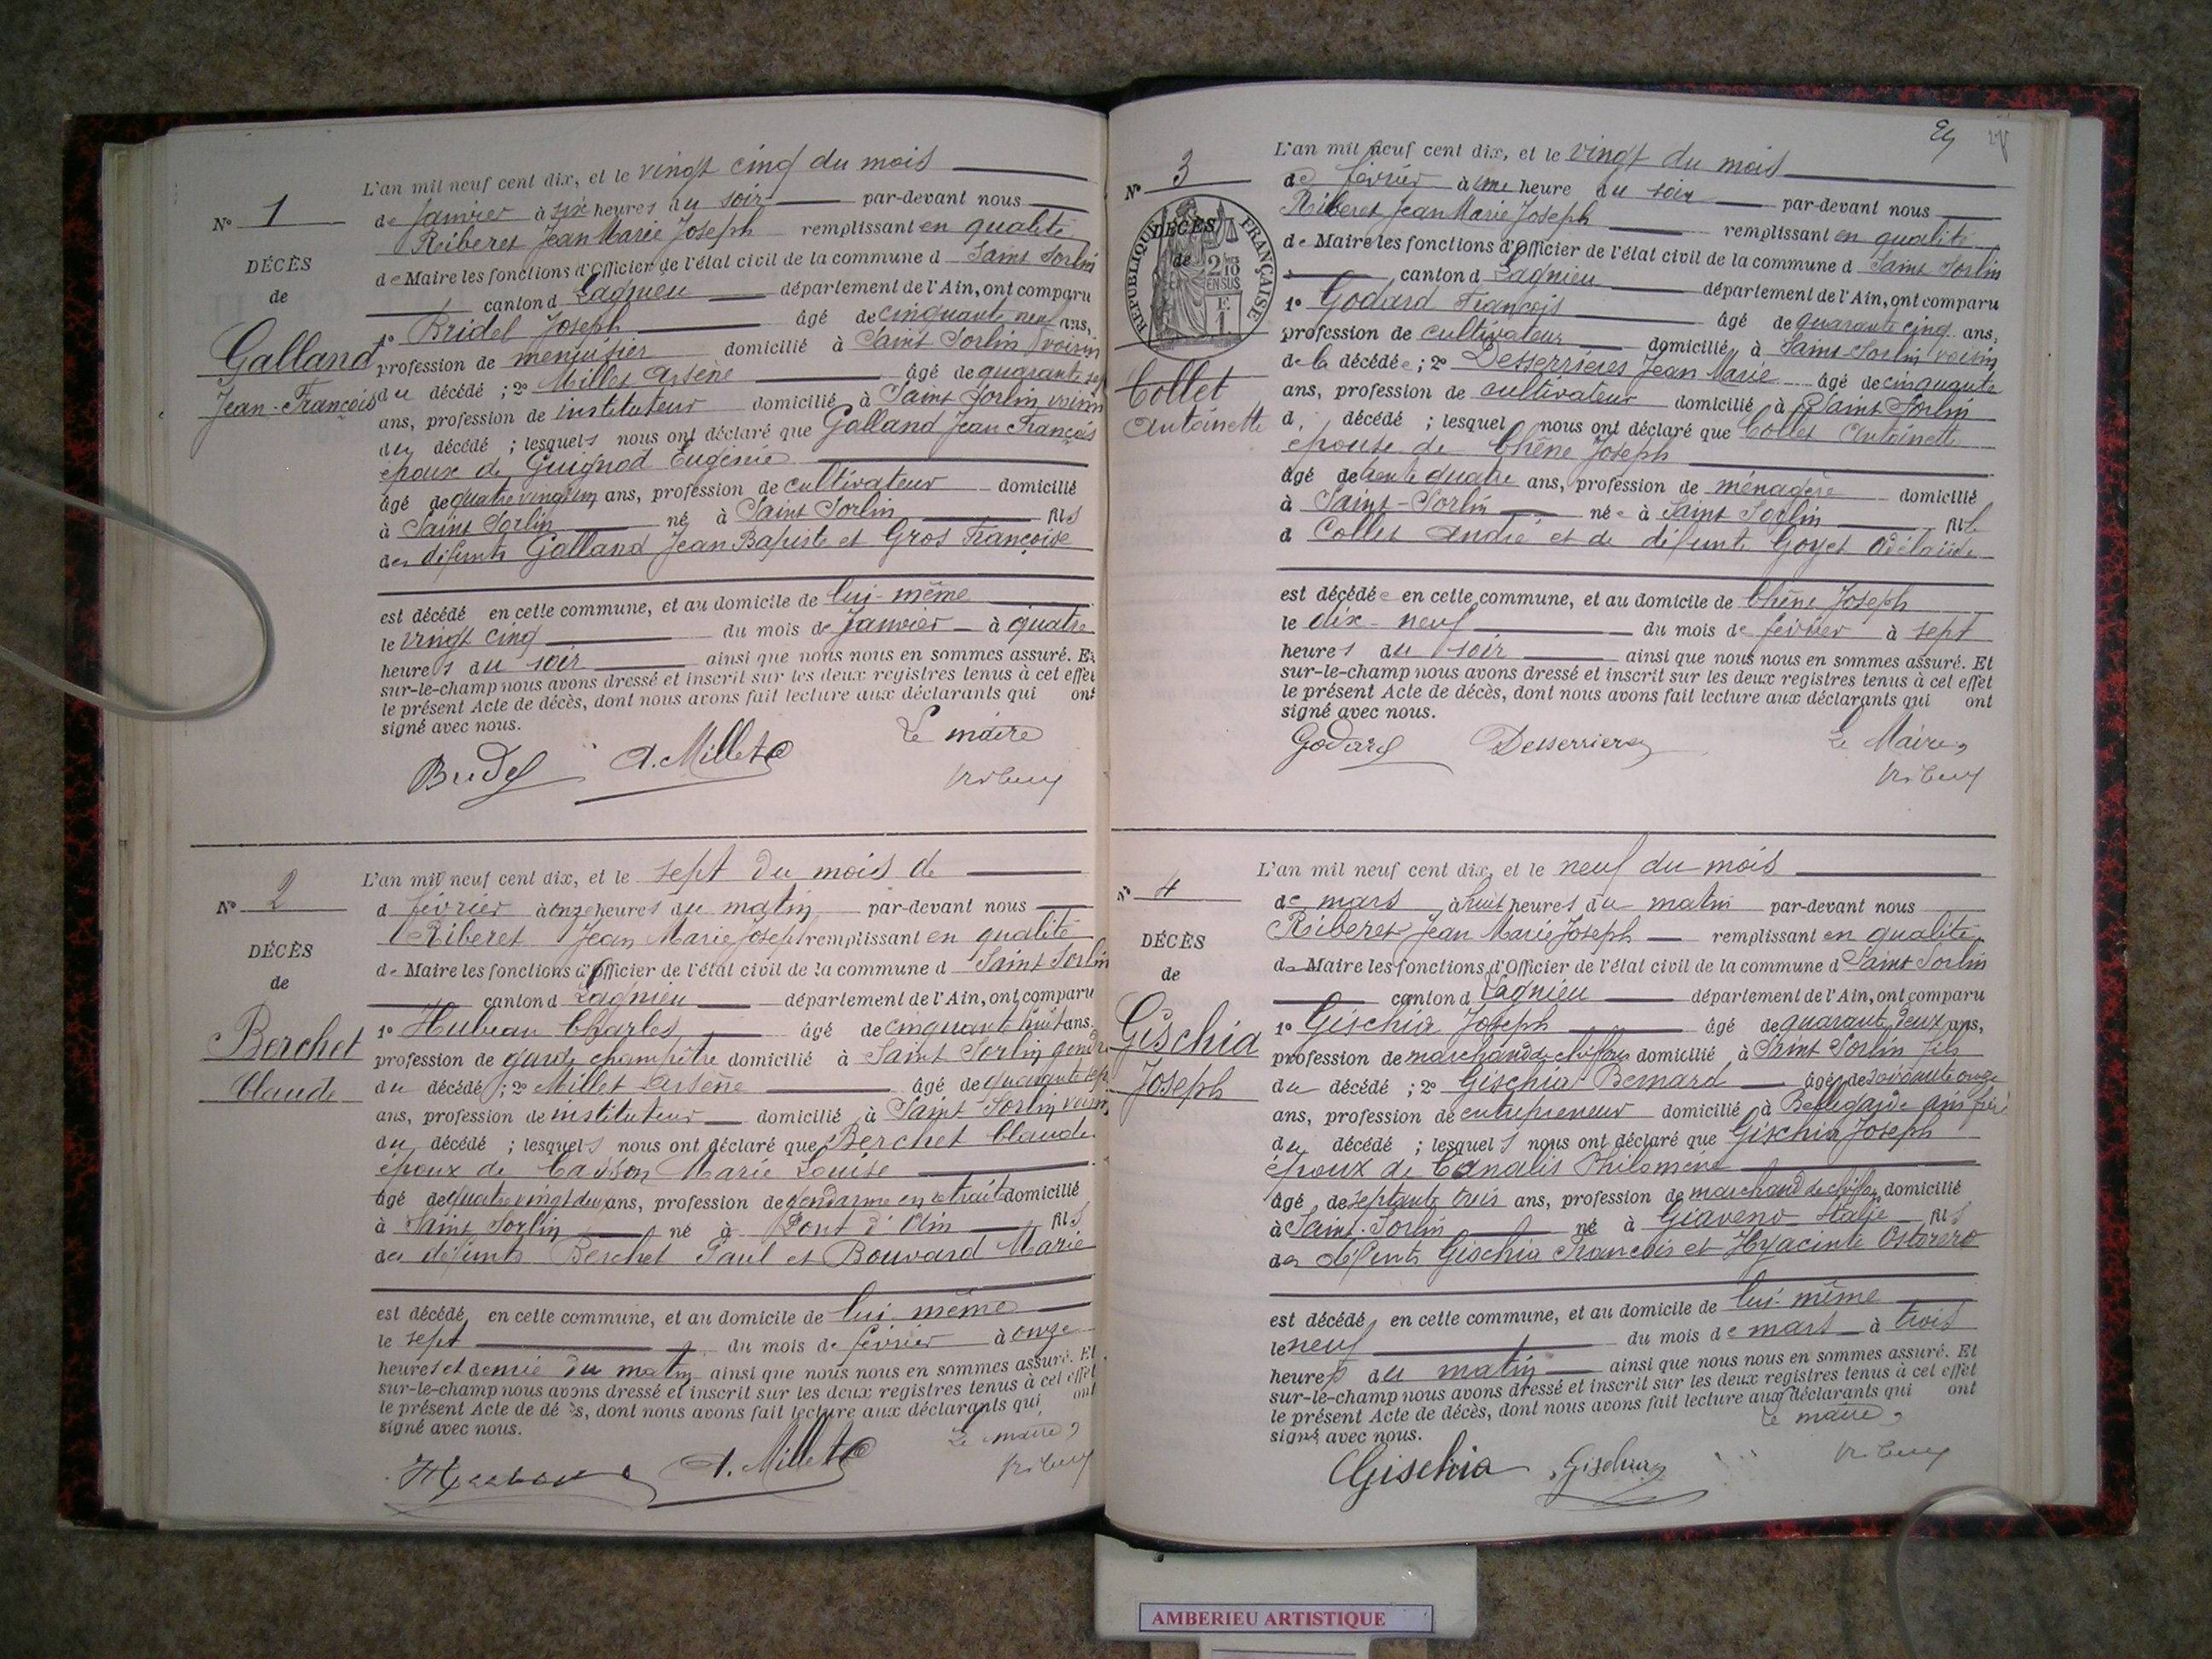 N° 1
DÉCÈS
de
Galland
Jean-François
L'an mil neuf cent dix, et le vingt cinq du mois
de Janvier à six heures du soir par-devant nous
Riberet Jean Marie Joseph remplissant en qualité
de Maire les fonctions d'Officier de l'état civil de la commune d Saint Sorlin
canton d Lagnieu département de l'Ain, ont comparu
1° Bridel Joseph âgé de cinquante neuf ans,
profession de menuisier domicilié à Saint Sorlin voisin
du décédé ; 2° Millet Arsène âgé de quarante sept
ans, profession de instituteur domicilié à Saint Sorlin voisin
du décédé ; lesquels nous ont déclaré que Galland Jean François
époux de Guignod Eugénie
âgé de quatre vingt un ans, profession de cultivateur domicilié
à Saint Sorlin né à Saint Sorlin fils
des défunts Galland Jean Baptiste et Gros Françoise
est décédé en cette commune, et au domicile de lui-même
le vingt cinq du mois de Janvier à quatre
heures du soir ainsi que nous nous en sommes assuré. Et
sur-le-champ nous avons dressé et inscrit sur les deux registres tenus à cet effet
le présent Acte de décès, dont nous avons fait lecture aux déclarants qui ont
signé avec nous.
Le maire
Bridel A. Millet
Riberet
N° 2
DÉCÈS
de
Berchet
Claude
L'an mil neuf cent dix, et le sept du mois de
d février à onze heures du matin par-devant nous
Riberet Jean Marie Joseph remplissant en qualité
de Maire les fonctions d'Officier de l'état civil de la commune d Saint Sorlin
canton d Lagnieu département de l'Ain, ont comparu
1° Hubeau Charles âgé de cinquante huit ans,
profession de garde champêtre domicilié à Saint Sorlin gendre
du décédé ; 2° Millet Arsène âgé de quarante sept
ans, profession de instituteur domicilié à Saint Sorlin voisin
du décédé ; lesquels nous ont déclaré que Berchet Claude
époux de Marie Louise
âgé de quatre vingt deux ans, profession de gendarme en retraite domicilié
à Saint Sorlin né à Pont d'Ain fils
des défunts Berchet Paul et Bouvard Marie
est décédé en cette commune, et au domicile de lui même
le sept du mois de février à onze
heures et demie du matin ainsi que nous nous en sommes assuré. Et
sur-le-champ nous avons dressé et inscrit sur les deux registres tenus à cet effet
le présent Acte de décès, dont nous avons fait lecture aux déclarants qui ont
signé avec nous.
Le maire,
A. Millet
Riberet
N° 3
RÉPUBLIQUE FRANÇAISE
2/10 EN SUS
F. 1.
DÉCÈS
de
Collet
Antoinette
L'an mil neuf cent dix, et le vingt du mois
de février à une heure du soir par-devant nous
Riberet Jean Marie Joseph remplissant en qualité
de Maire les fonctions d'Officier de l'état civil de la commune d Saint Sorlin
canton d Lagnieu département de l'Ain, ont comparu
1° Godard François âgé de quarante cinq ans,
profession de cultivateur domicilié à Saint-Sorlin voisin
de la décédée ; 2° Desserrières Jean Marie âgé de cinquante
ans, profession de cultivateur domicilié à Saint Sorlin
d décédé ; lesquel nous ont déclaré que Collet Antoinette
épouse de Chêne Joseph
âgé de trente quatre ans, profession de ménagère domicilié
à Saint-Sorlin née à Saint Sorlin fille
d Collet André et de défunte Goyet Adélaïde
est décédée en cette commune, et au domicile de Chêne Joseph
le dix-neuf du mois de février à sept
heures du soir ainsi que nous nous en sommes assuré. Et
sur-le-champ nous avons dressé et inscrit sur les deux registres tenus à cet effet
le présent Acte de décès, dont nous avons fait lecture aux déclarants qui ont
signé avec nous.
Godard Desserrières Le Maire,
Riberet
N° 4
DÉCÈS
de
Gischia
Joseph
L'an mil neuf cent dix, et le neuf du mois
de mars à huit heures du matin par-devant nous
Riberet Jean Marie Joseph remplissant en qualité
de Maire les fonctions d'Officier de l'état civil de la commune d Saint Sorlin
canton d Lagnieu département de l'Ain, ont comparu
1° Gischia Joseph âgé de quarante deux ans,
profession de marchand de chiffons domicilié à Saint Sorlin fils
du décédé ; 2° Gischia Bernard âgé de soixante onze
ans, profession de entrepreneur domicilié à Bellegarde Ain frère
du décédé ; lesquels nous ont déclaré que Gischia Joseph
époux de Canalis Philomène
âgé de septante trois ans, profession de marchand de chiffons domicilié
à Saint-Sorlin né à Giaveno Italie fils
des défunts Gischia François et Hyacinte Ostorero
est décédé en cette commune, et au domicile de lui-même
le neuf du mois de mars à trois
heures du matin ainsi que nous nous en sommes assuré. Et
sur-le-champ nous avons dressé et inscrit sur les deux registres tenus à cet effet
le présent Acte de décès, dont nous avons fait lecture aux déclarants qui ont
signé avec nous.
Le maire,
Gischia Gischia
Riberet
AMBERIEU ARTISTIQUE